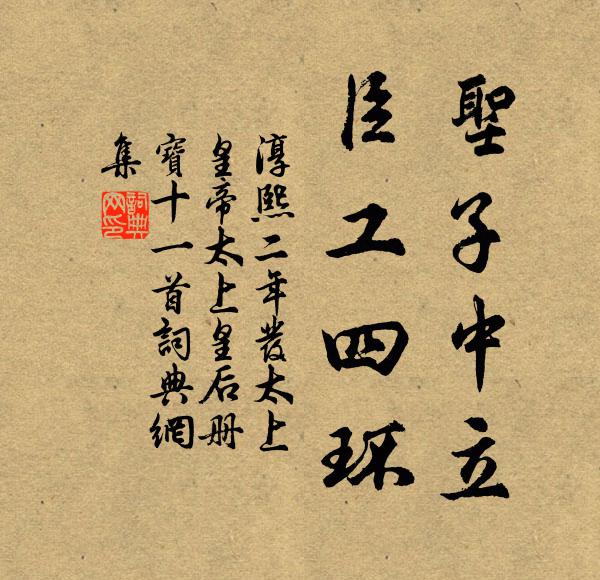 聖子中立
臣工四环
淳熙二年發太上
皇帝太上皇后册
寶十一首詞典網
集
詞典網印